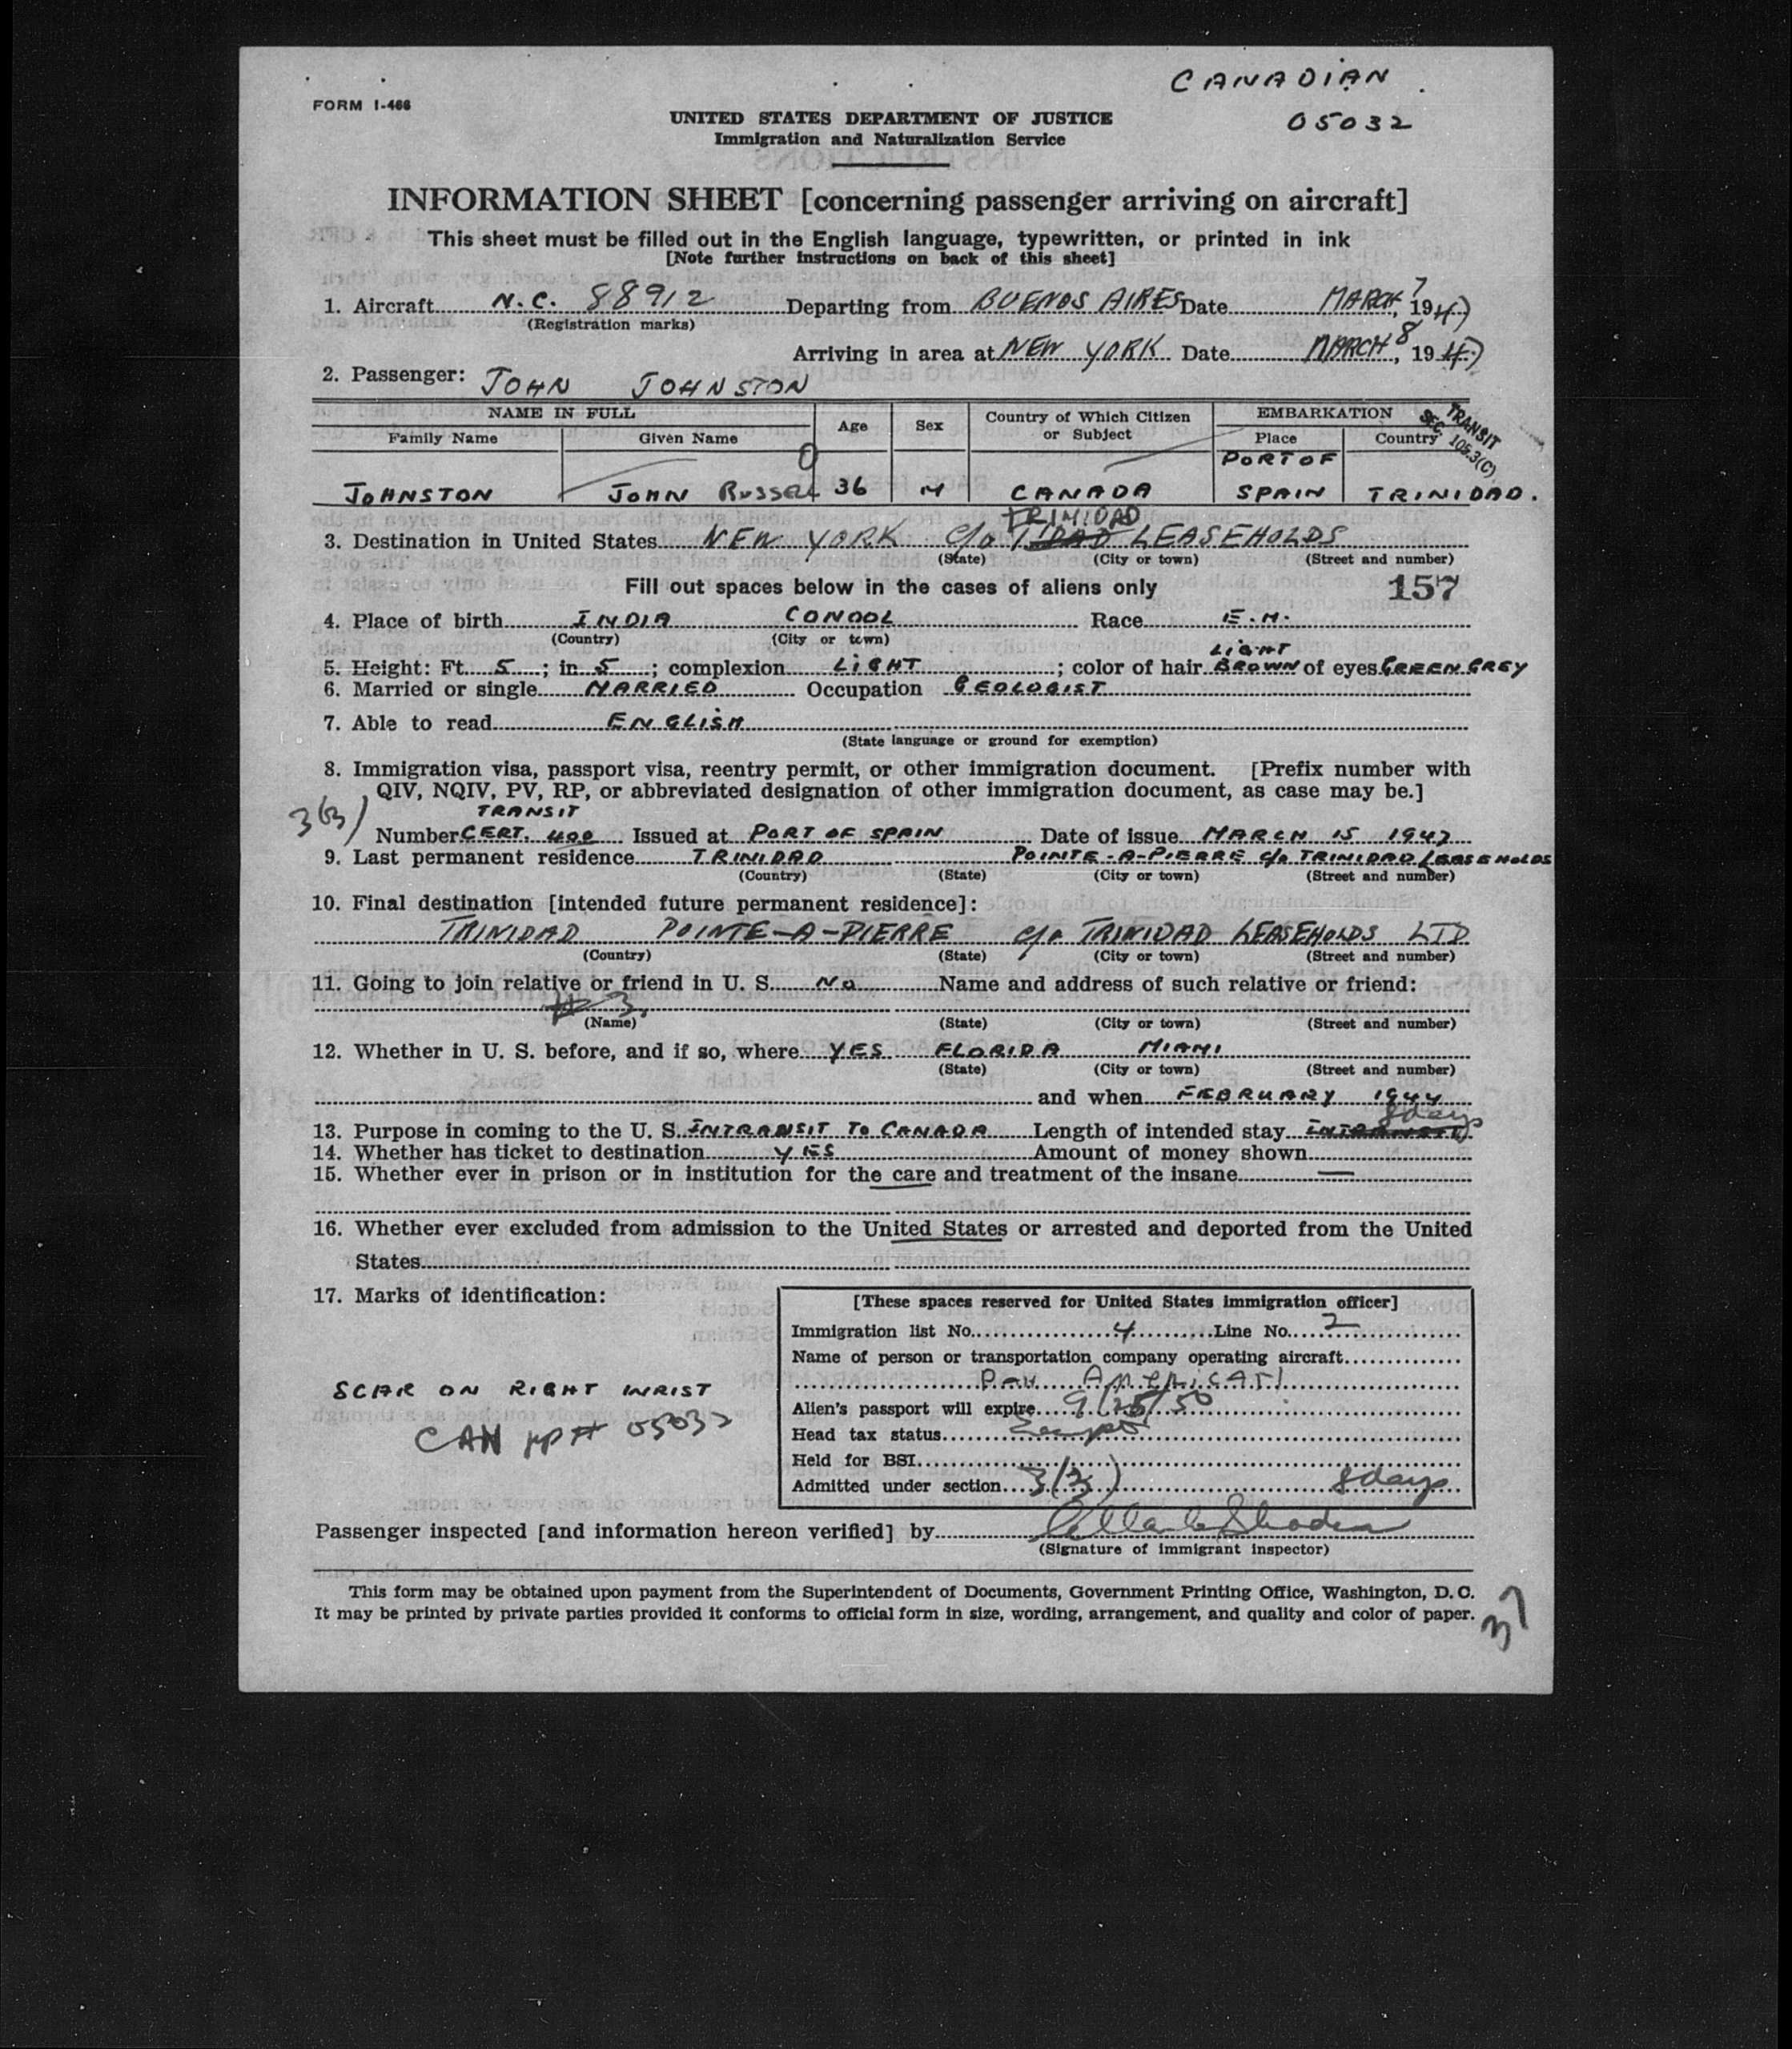 CANADIAN
05032
FORM I-466
UNITED STATES DEPARTMENT OF JUSTICE
Immigration and Naturalization Service
INFORMATION SHEET [concerning passenger arriving on aircraft]
This sheet must be filled out in the English language, typewritten, or printed in ink
[Note further instructions on back of this sheet]
1. Aircraft N.C. 88912 Departing from BUENOS AIRES Date MARCH 7, 1947
(Registration marks)
Arriving in area at NEW YORK Date MARCH 8, 1947
2. Passenger: JOHN JOHNSTON
NAME IN FULL Age Sex Country of Which Citizen or Subject EMBARKATION
Family Name Given Name Place Country
TRANSIT
SEC. 105.3(C)
PORT OF
JOHNSTON JOHN RUSSEL 36 M CANADA SPAIN TRINIDAD.
TRINIDAD
3. Destination in United States NEW YORK c/o LEASEHOLDS
(State) (City or town) (Street and number)
Fill out spaces below in the cases of aliens only 157
4. Place of birth INDIA CONOOL Race E.H.
(Country) (City or town)
LIGHT
5. Height: Ft. 5; in 5; complexion LIGHT; color of hair BROWN of eyes GREEN GREY
6. Married or single MARRIED Occupation GEOLOGIST
7. Able to read ENGLISH
(State language or ground for exemption)
8. Immigration visa, passport visa, reentry permit, or other immigration document. [Prefix number with
QIV, NQIV, PV, RP, or abbreviated designation of other immigration document, as case may be.]
3(3) TRANSIT
Number CERT. 400 Issued at PORT OF SPAIN Date of issue MARCH 15 1947
9. Last permanent residence TRINIDAD POINTE-A-PIERRE c/o TRINIDAD LEASEHOLDS
(Country) (State) (City or town) (Street and number)
10. Final destination [intended future permanent residence]:
TRINIDAD POINTE-A-PIERRE c/o TRINIDAD LEASEHOLDS LTD
(Country) (State) (City or town) (Street and number)
11. Going to join relative or friend in U. S. No Name and address of such relative or friend:
# 3.
(Name) (State) (City or town) (Street and number)
12. Whether in U. S. before, and if so, where YES FLORIDA MIAMI
(State) (City or town) (Street and number)
and when FEBRUARY 1944
8 days
13. Purpose in coming to the U. S. INTRANSIT TO CANADA Length of intended stay INTRANSIT
14. Whether has ticket to destination YES Amount of money shown
15. Whether ever in prison or in institution for the care and treatment of the insane —
16. Whether ever excluded from admission to the United States or arrested and deported from the United
States
17. Marks of identification:
SCAR ON RIGHT WRIST
CAN PP# 05032
[These spaces reserved for United States immigration officer]
Immigration list No. 4 Line No. 2
Name of person or transportation company operating aircraft
PAN AMERICAN
Alien's passport will expire 9/25/50
Head tax status
Held for BSI
Admitted under section 3(3) 8 days
Passenger inspected [and information hereon verified] by
(Signature of immigrant inspector)
This form may be obtained upon payment from the Superintendent of Documents, Government Printing Office, Washington, D. C.
It may be printed by private parties provided it conforms to official form in size, wording, arrangement, and quality and color of paper.
37